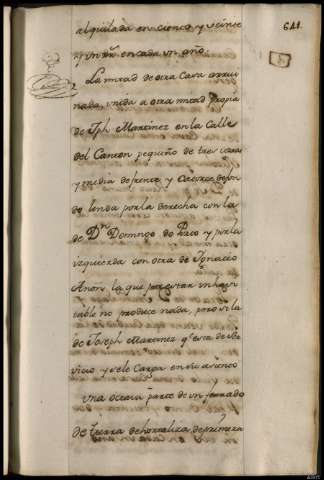 641
alquilada en ciento y veinte
y un rr.s en cada un año
La mitad de otra Casa arrui
nada, unida a otra mitad propia
de Jph Martinez en la Calle
del Canton pequeño de tres varas
y media de frente y Catorce de fon
do linda por la derecha con la
de Dn Domingo do Pazo y por la
izquierda con otra de Ignacio
Anon la que por estar inhavi
table no produce nada, pero si la
de Joseph Martinez qe esta de ser
vicio y se le Carga en su asiento
Una octava parte de un ferrado
de tierra de hortaliza de primera